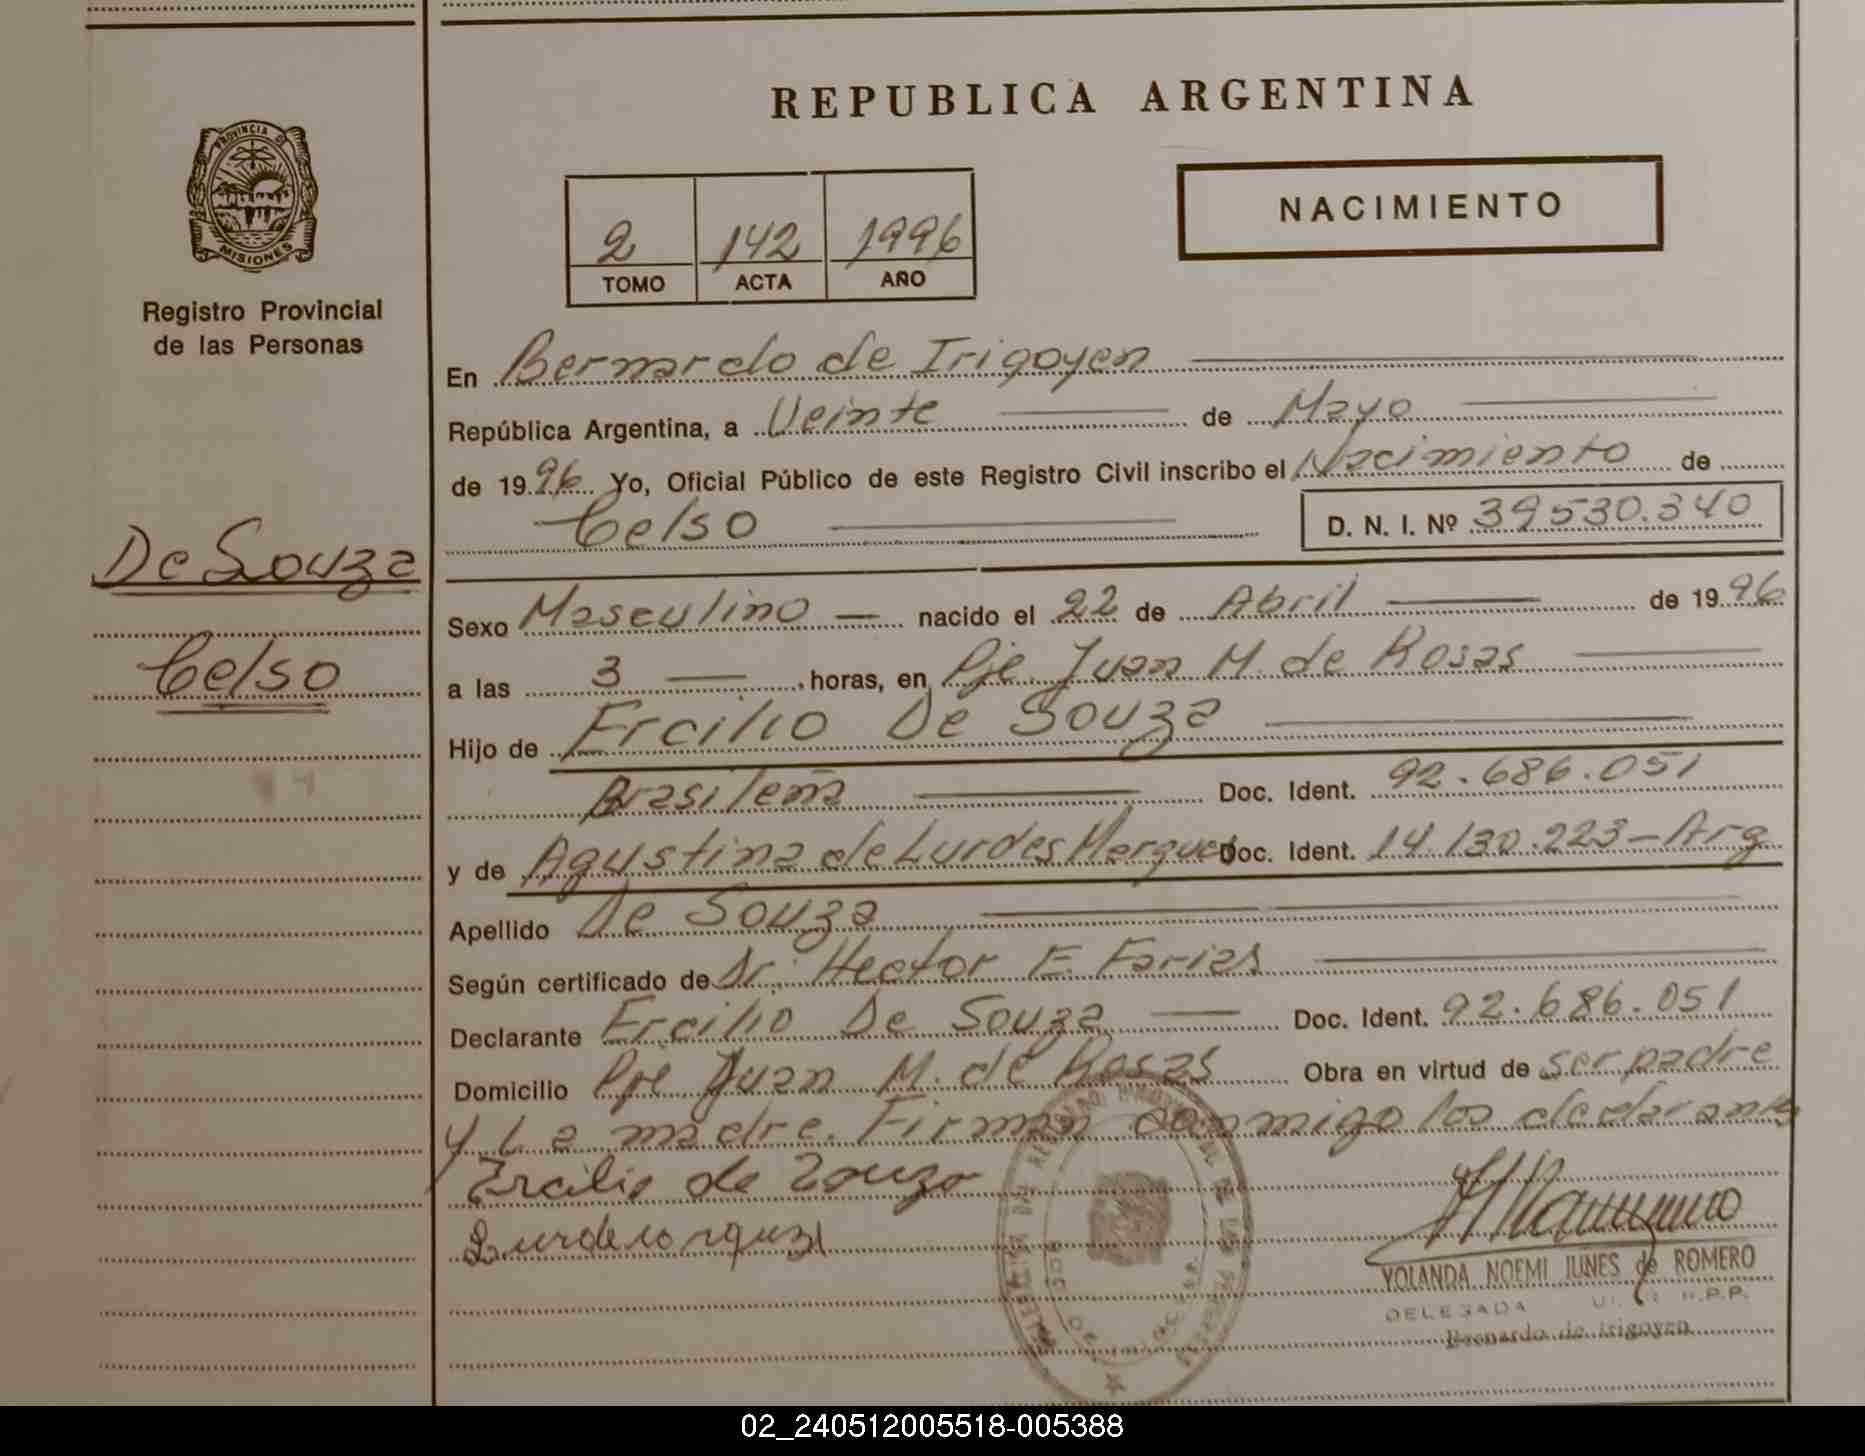 REPUBLICA ARGENTINA
PROVINCIA DE
MISIONES
Registro Provincial
de las Personas
NACIMIENTO
2 142 1996
TOMO ACTA AÑO
En Bernardo de Irigoyen
República Argentina, a Veinte de Mayo
de 1996 Yo, Oficial Público de este Registro Civil inscribo el Nacimiento de
Celso D. N. I. Nº 39530.340
De Souza
Celso
Sexo Masculino — nacido el 22 de Abril de 1996
a las 3 — horas, en Pje Juan M. de Rosas
Hijo de Ercilio De Souza
Brasileña Doc. Ident. 92.686.051
y de Agustina de Lurdes Doc. Ident. 14.130.223 - Arg
Apellido De Souza
Según certificado de Dr. Hector E. Farias
Declarante Ercilio De Souza — Doc. Ident. 92.686.051
Domicilio Pje Juan M. de Rosas Obra en virtud de ser padre
y La madre. Firman conmigo los declarantes
Ercilio de Souza
YOLANDA NOEMI JUNES de ROMERO
DELEGADA R.P.P.
Bernardo de Irigoyen
02_240512005518-005388